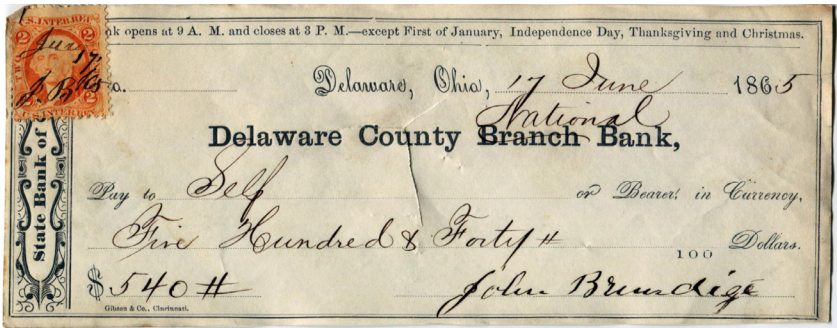 nk opens at 9 A. M. and closes at 3 P. M.—except First of January, Independence Day, Thanksgiving and Christmas.
S. INTER. REV
2 2
TWO
June
17/65
J. B.
2 2
o.
Delaware, Ohio, 17 June 1865
National
Delaware County Branch Bank,
State Bank of
Pay to Self or Bearer, in Currency,
Five Hundred & Forty # 100 Dollars.
$ 540 #
John Brundige
Gibson & Co., Cincinnati.